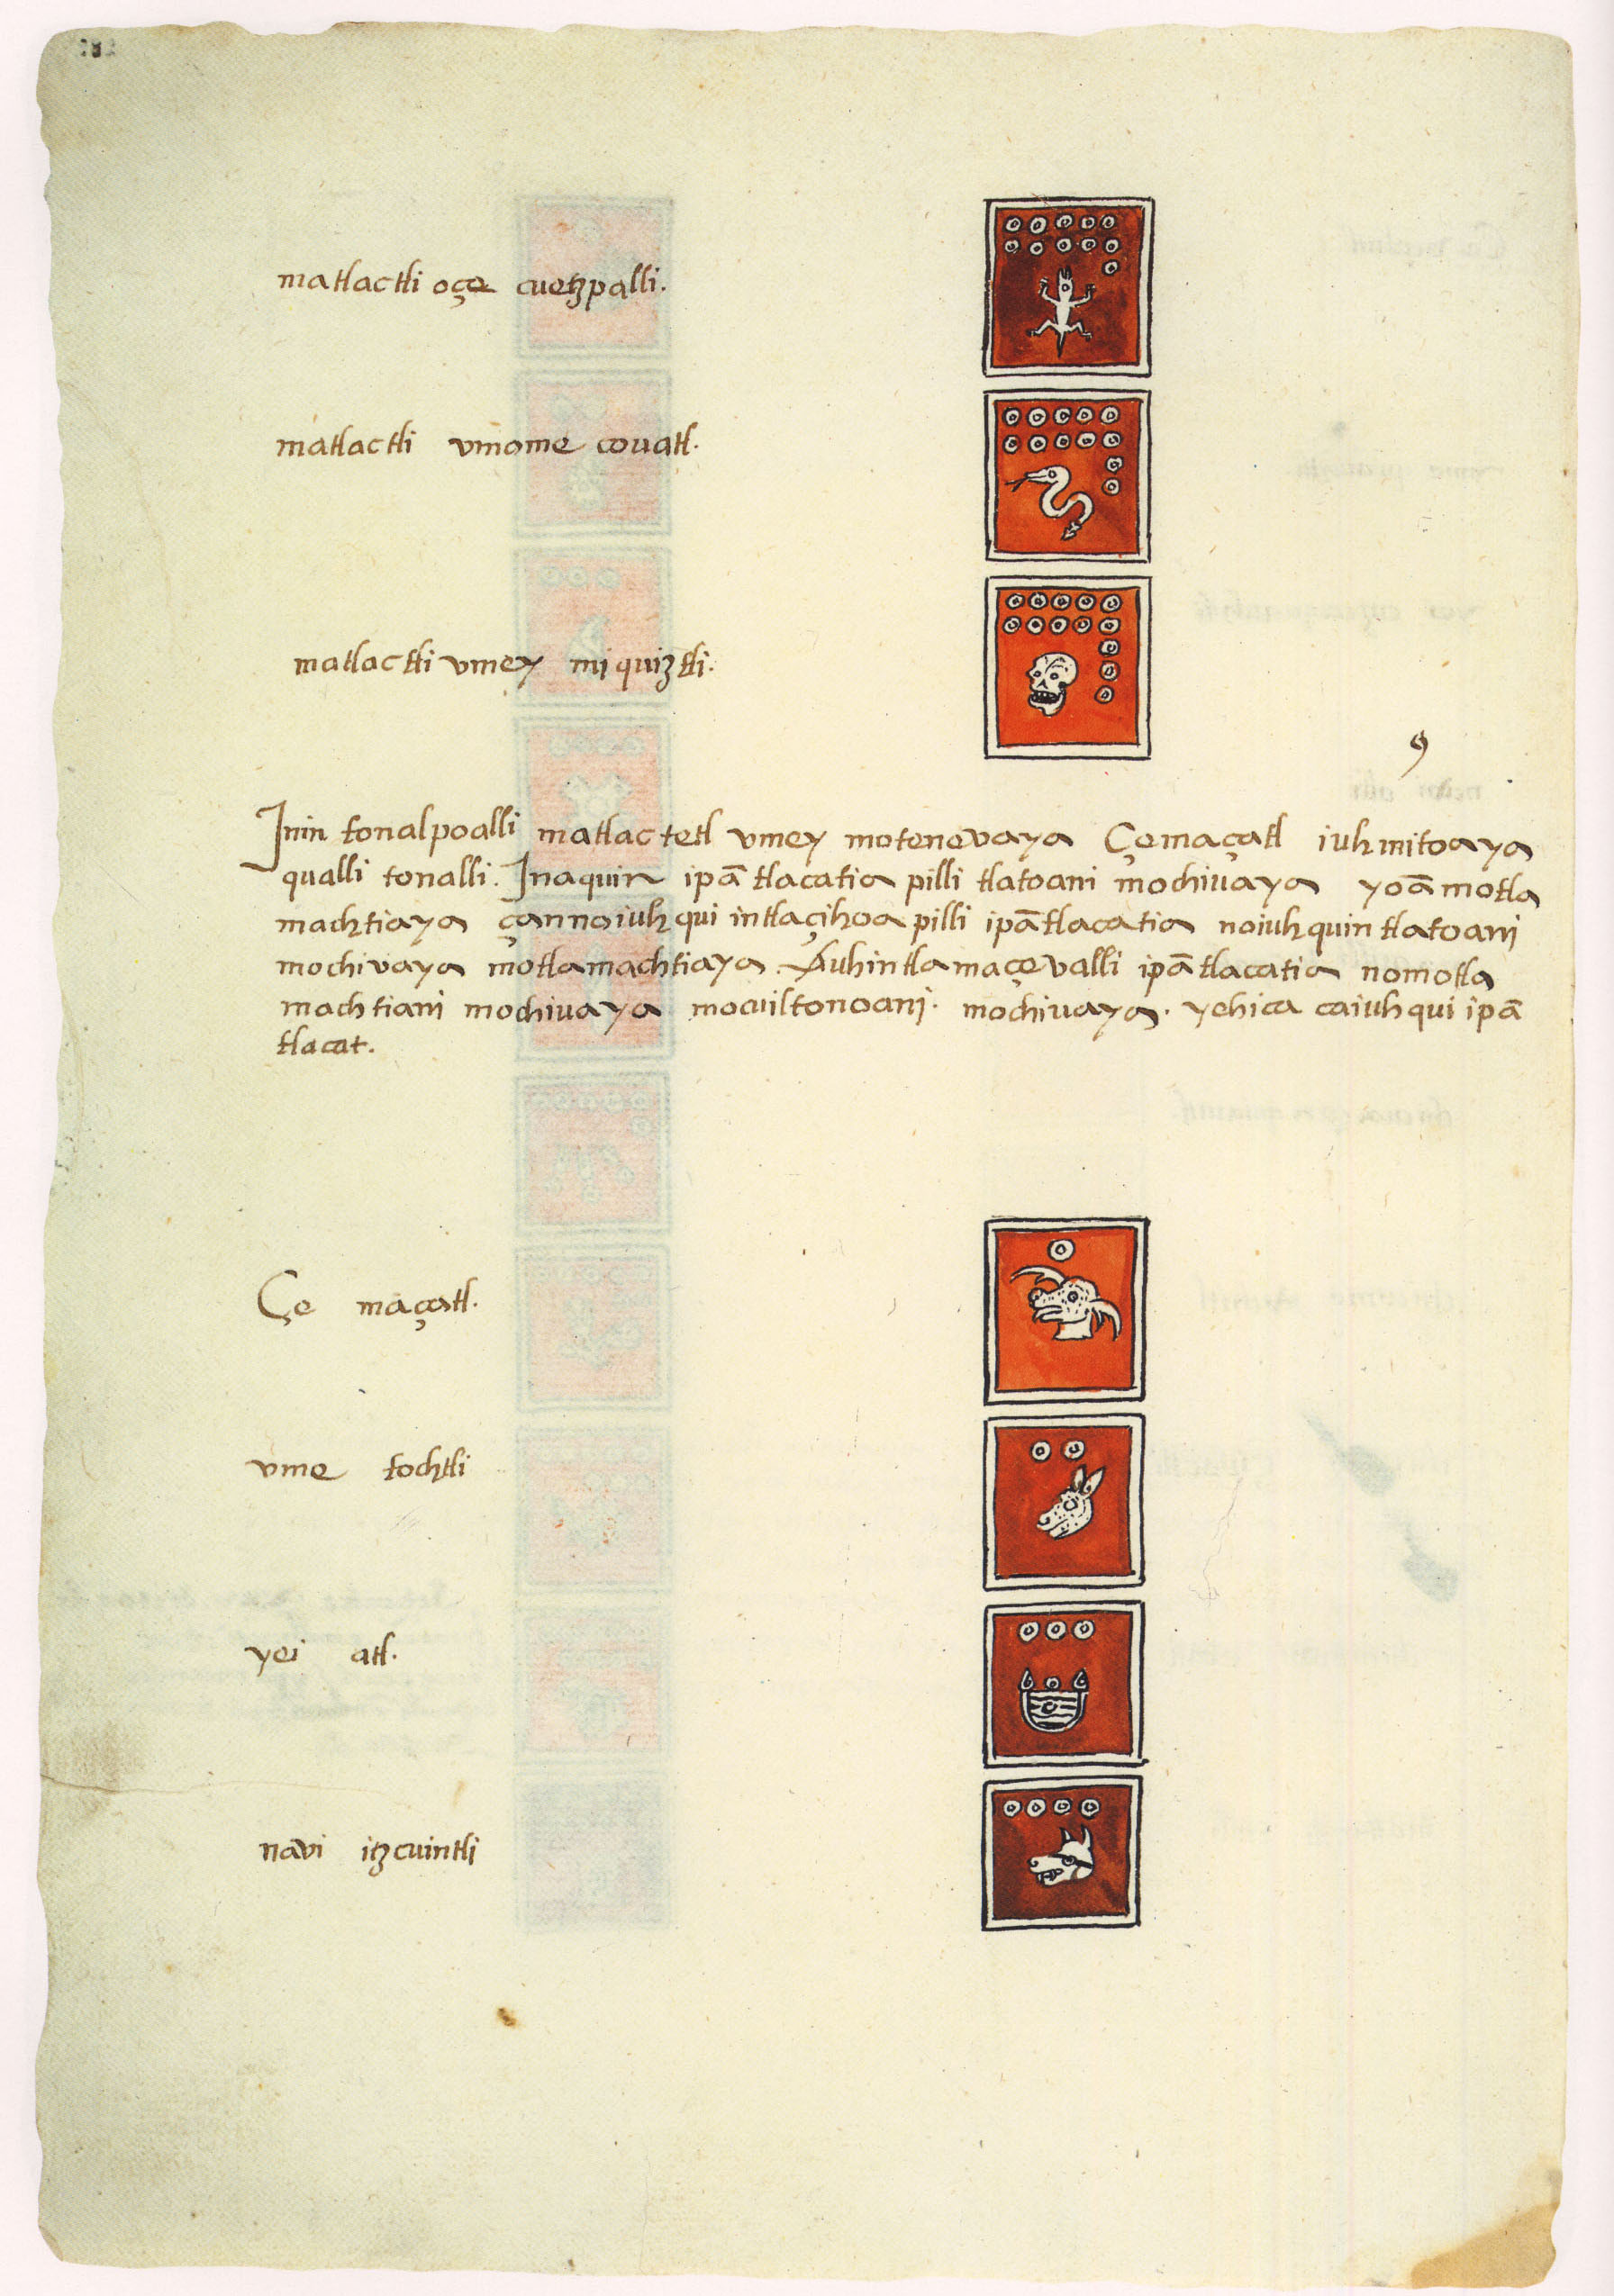 matlactli oçe cuetzpalli.
matlactli vmome covatl.
matlactli vmey miquiztli.
9
Inin tonalpoalli matlactetl vmey motenevaya Çemaçatl iuhmitoaya
qualli tonalli. Inaquin ipā tlacatia pilli tlatoani mochivaya yoā motla
machtiaya çannoiuhqui intlaçihoapilli ipātlacatia noiuhquin tlatoani
mochivaya motlamachtiaya. Auhintlamaçevalli ipātlacatia nomotla
machtiani mochivaya mocuiltonoani. mochivaya. yehica caiuhqui ipā
tlacat.
Çe maçatl.
vme tochtli
yei atl.
navi itzcuintli